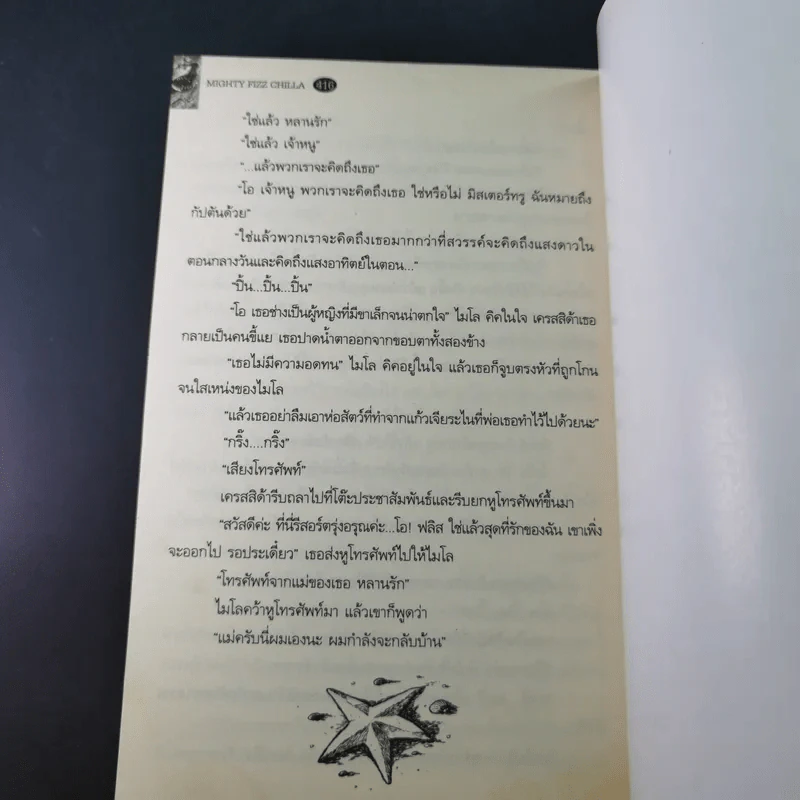 MIGHTY FIZZ CHILLA 416
"ใช่แล้ว หลานรัก"
"ใช่แล้ว เจ้าหนู"
"...แล้วพวกเราจะคิดถึงเธอ"
"โอ เจ้าหนู พวกเราจะคิดถึงเธอ ใช่หรือไม่ มิสเตอร์ทรู ฉันหมายถึง
กัปตันด้วย"
"ใช่แล้วพวกเราจะคิดถึงเธอมากกว่าที่สวรรค์จะคิดถึงแสงดาวใน
ตอนกลางวันและคิดถึงแสงอาทิตย์ในตอน..."
"ปิ้น...ปิ้น...ปิ้น"
"โอ เธอช่างเป็นผู้หญิงที่มีขาเล็กจนน่าตกใจ" ไมโล คิดในใจ เครสสิด้าเธอ
กลายเป็นคนขี้แย เธอปาดน้ำตาออกจากขอบตาทั้งสองข้าง
"เธอไม่มีความอดทน" ไมโล คิดอยู่ในใจ แล้วเธอก็จูบตรงหัวที่ถูกโกน
จนใสเหน่งของไมโล
"แล้วเธออย่าลืมเอาห่อสัตว์ที่ทำจากแก้วเจียระไนที่พ่อเธอทำไว้ไปด้วยนะ"
"กริ๊ง....กริ๊ง"
"เสียงโทรศัพท์"
เครสสิด้ารีบถลาไปที่โต๊ะประชาสัมพันธ์และรีบยกหูโทรศัพท์ขึ้นมา
"สวัสดีค่ะ ที่นี่รีสอร์ตรุ่งอรุณค่ะ...โอ! ฟลิส ใช่แล้วสุดที่รักของฉัน เขาเพิ่ง
จะออกไป รอประเดี๋ยว" เธอส่งหูโทรศัพท์ไปให้ไมโล
"โทรศัพท์จากแม่ของเธอ หลานรัก"
ไมโลคว้าหูโทรศัพท์มา แล้วเขาก็พูดว่า
"แม่ครับนี่ผมเองนะ ผมกำลังจะกลับบ้าน"